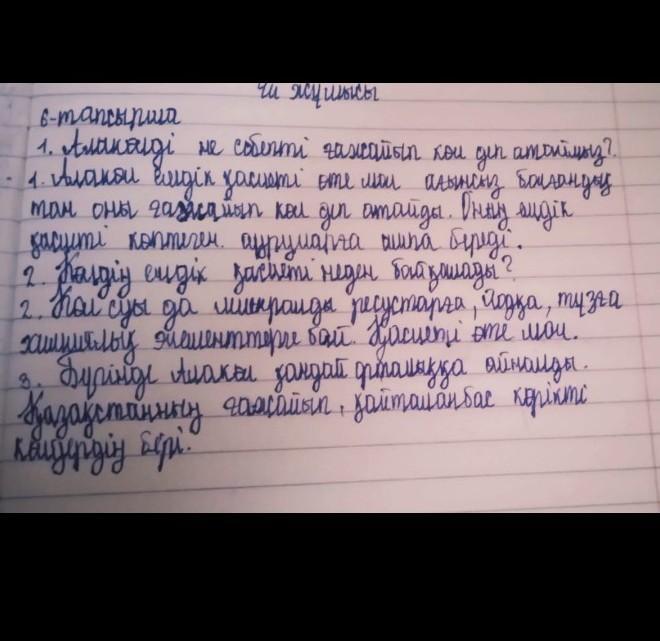 Үй жұмысы
6-тапсырма
1. Алакөлді не себепті ғажайып көл деп атаймыз?
1. Алакөл емдік қасиеті өте мол ағынсыз болғандық
тан оны ғажайып көл деп атайды. Оның емдік
қасиеті көптеген ауруларға шипа береді.
2. Көлдің емдік қасиеті неден байқалады?
2. Көл суы да минралды ресустарға, йодқа, тұзға
химиялық элементтерге бай. Қасиеті өте мол.
3. Бүгінде Алакөл қандай орталыққа айналды.
Қазақстанның ғажайып, қайталанбас көрікті
көлдердің бері.